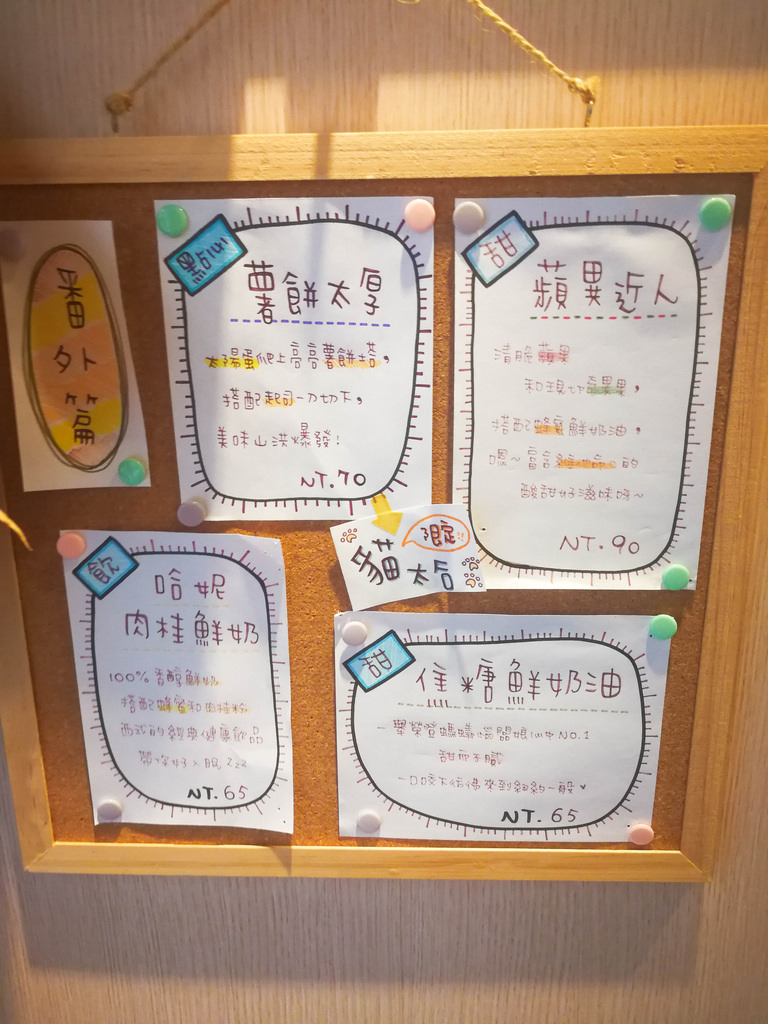 番外篇
點心
薯餅太厚
太陽蛋爬上高高薯餅塔,
搭配起司一刀切下,
美味山洪爆發!
NT.70
甜
蘋異近人
清脆蘋果
和現切奇異果,
搭配蜂蜜鮮奶油,
嘿~富含維他命C的
酸甜好滋味呀~
NT.90
限定!!
貓太后
飲
哈妮
肉桂鮮奶
100%香醇鮮奶
搭配蜂蜜和肉桂粉
西式的經典健康飲品
帶你好入眠Zzz
NT.65
甜
焦糖鮮奶油
-舉榮登螞蟻貓闆娘心中NO.1
甜而不膩
一口咬下彷彿來到紐約一般♥
NT.65